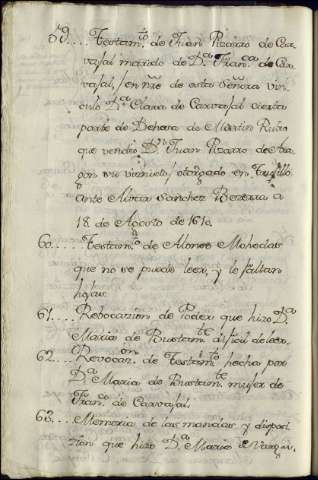 59.... Testam.to de Juan Pizarro de Car
vajal marido de D.a Fran.ca de Car
vajal, / en ñre de esta Señora vin
culo D.a Clara de Carvajal cierta
parte de Dehesa de Martin Rubio
que vendio D.n Juan Pizarro de Ara
gon su visnieto / otorgado en Trujillo
ante Sanchez Becerra a
18 de Agosto de 1610.
60.... Testam.to de Alonso Mohedas
que no se puede leer, y le faltan
hojas.
61.... Rebocazion de Poder que hizo D.a
Maria de Bustam.te dificil de leer.
62.... Revocaz.on de Testam.to hecha por
D.a Maria de Bustam.te mujer de
Fran.co de Carvajal.
63.... Memoria de las mandas, y disposi
zion que hizo D.a Maria de Vargas.